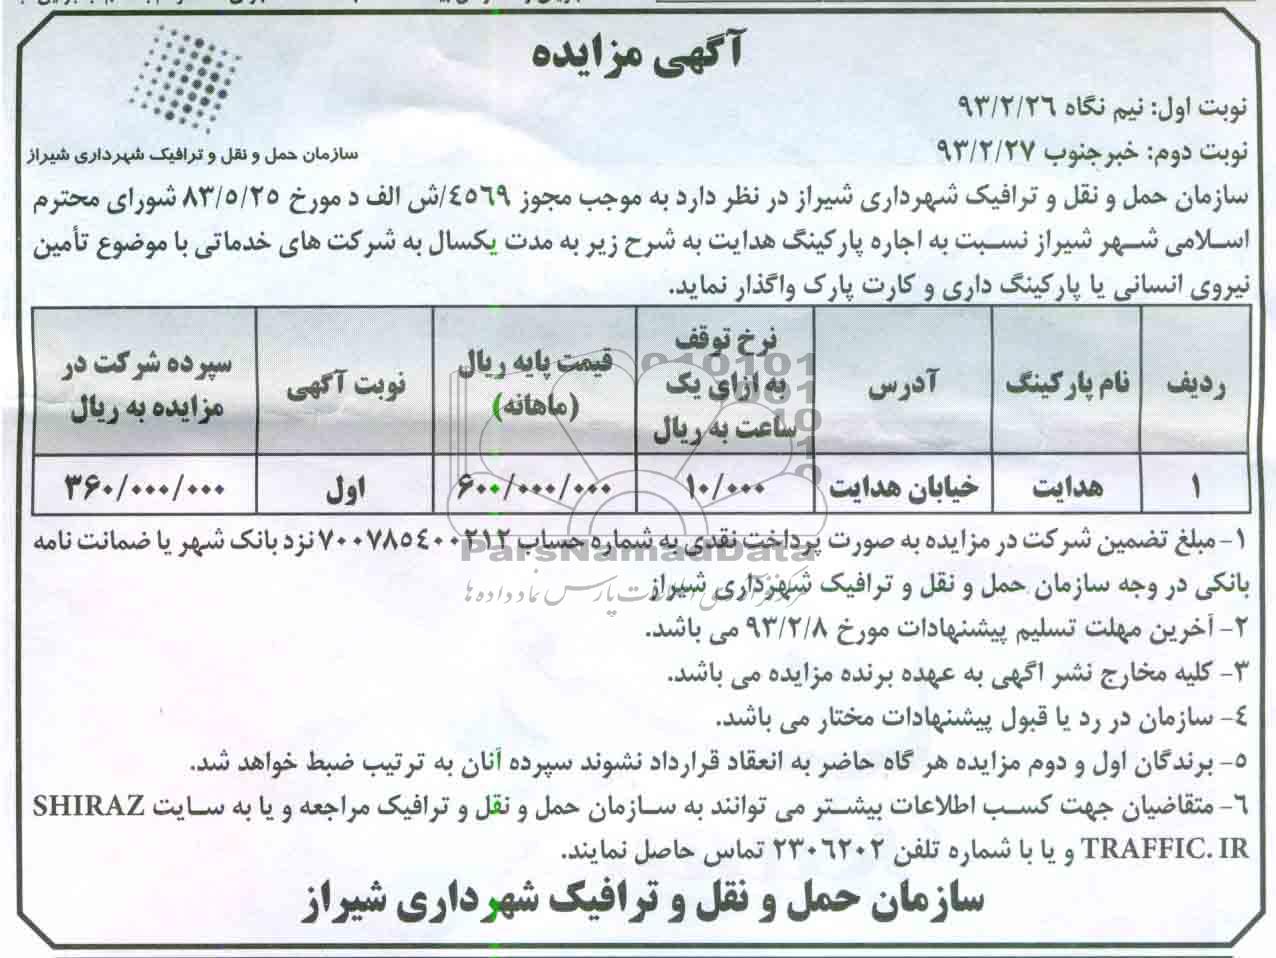 آگهی مزایده
سازمان حمل و نقل و ترافیک شهرداری شیراز
نوبت اول: نیم نگاه ۹۳/۲/۲٦
نوبت دوم: خبرجنوب ۹۳/۲/۲۷
سازمان حمل و نقل و ترافیک شهرداری شیراز در نظر دارد به موجب مجوز ٤٥٦٩/ش الف د مورخ ۸۳/٥/۲٥ شورای محترم
اسلامی شهر شیراز نسبت به اجاره پارکینگ هدایت به شرح زیر به مدت یکسال به شرکت های خدماتی با موضوع تأمین
نیروی انسانی یا پارکینگ داری و کارت پارک واگذار نماید.
ردیف | نام پارکینگ | آدرس | نرخ توقف به ازای یک ساعت به ریال | قیمت پایه ریال (ماهانه) | نوبت آگهی | سپرده شرکت در مزایده به ریال
۱ | هدایت | خیابان هدایت | ۱۰/۰۰۰ | ۶۰۰/۰۰۰/۰۰۰ | اول | ۳۶۰/۰۰۰/۰۰۰
۱- مبلغ تضمین شرکت در مزایده به صورت پرداخت نقدی به شماره حساب ۷۰۰۷۸٥٤۰۰۲۱۲ نزد بانک شهر یا ضمانت نامه
بانکی در وجه سازمان حمل و نقل و ترافیک شهرداری شیراز
۲- آخرین مهلت تسلیم پیشنهادات مورخ ۹۳/۲/۸ می باشد.
۳- کلیه مخارج نشر اگهی به عهده برنده مزایده می باشد.
٤- سازمان در رد یا قبول پیشنهادات مختار می باشد.
٥- برندگان اول و دوم مزایده هر گاه حاضر به انعقاد قرارداد نشوند سپرده آنان به ترتیب ضبط خواهد شد.
٦- متقاضیان جهت کسب اطلاعات بیشتر می توانند به سازمان حمل و نقل و ترافیک مراجعه و یا به سایت SHIRAZ
TRAFFIC. IR و یا با شماره تلفن ۲۳۰٦۲۰۲ تماس حاصل نمایند.
سازمان حمل و نقل و ترافیک شهرداری شیراز
ParsNamadData